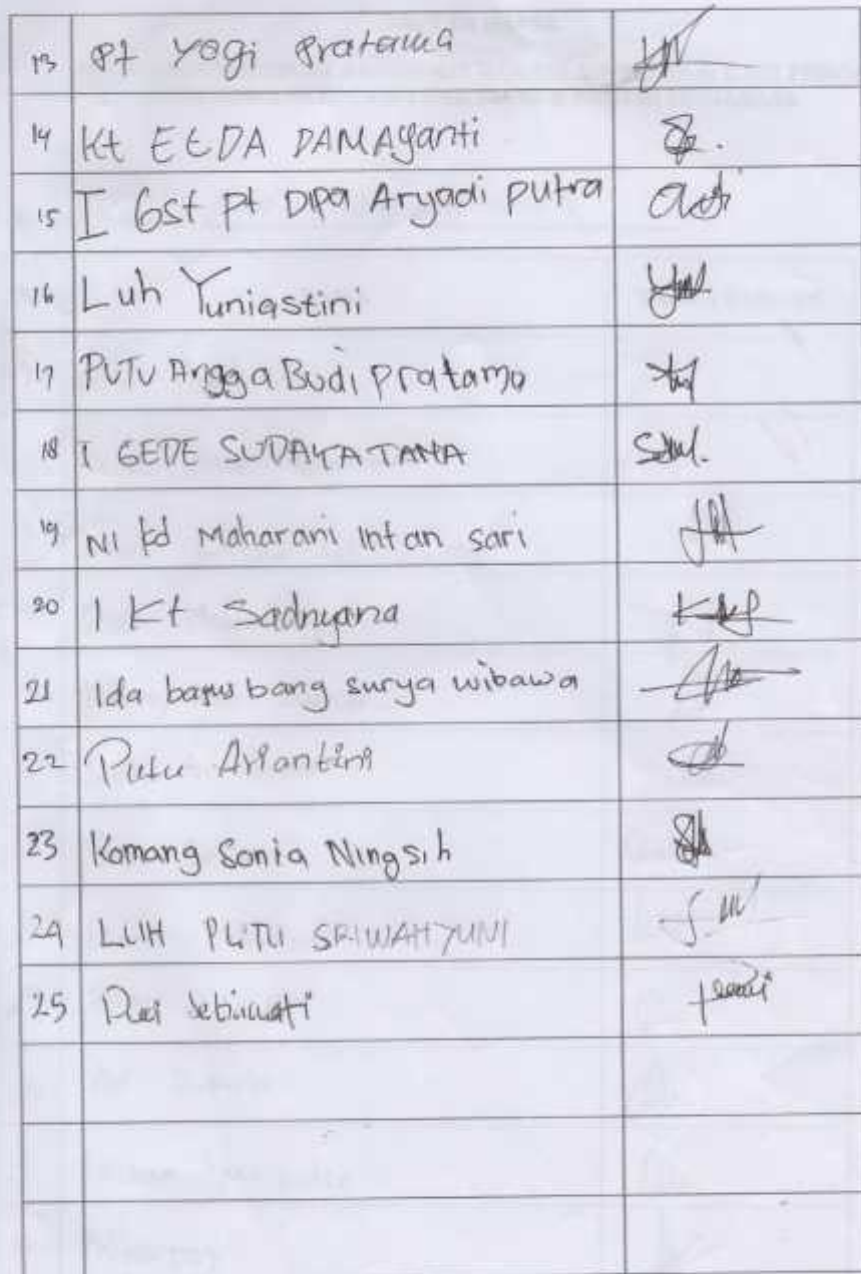 13 Pt Yogi Pratama
14 Kt EEDA DAMAYanti
15 I Gst Pt DIPA Aryadi putra
16 Luh Yuniastini
17 PUTU Angga Budi Pratama
18 I GEDE
19 NI kd Maharani Intan Sari
20 I Kt Sadnyana
21 Ida bagus bang surya wibawa
22 Putu Ariantini
23 Komang Sonia Ningsih
24 LUH PUTU SRIWAHYUNI
25